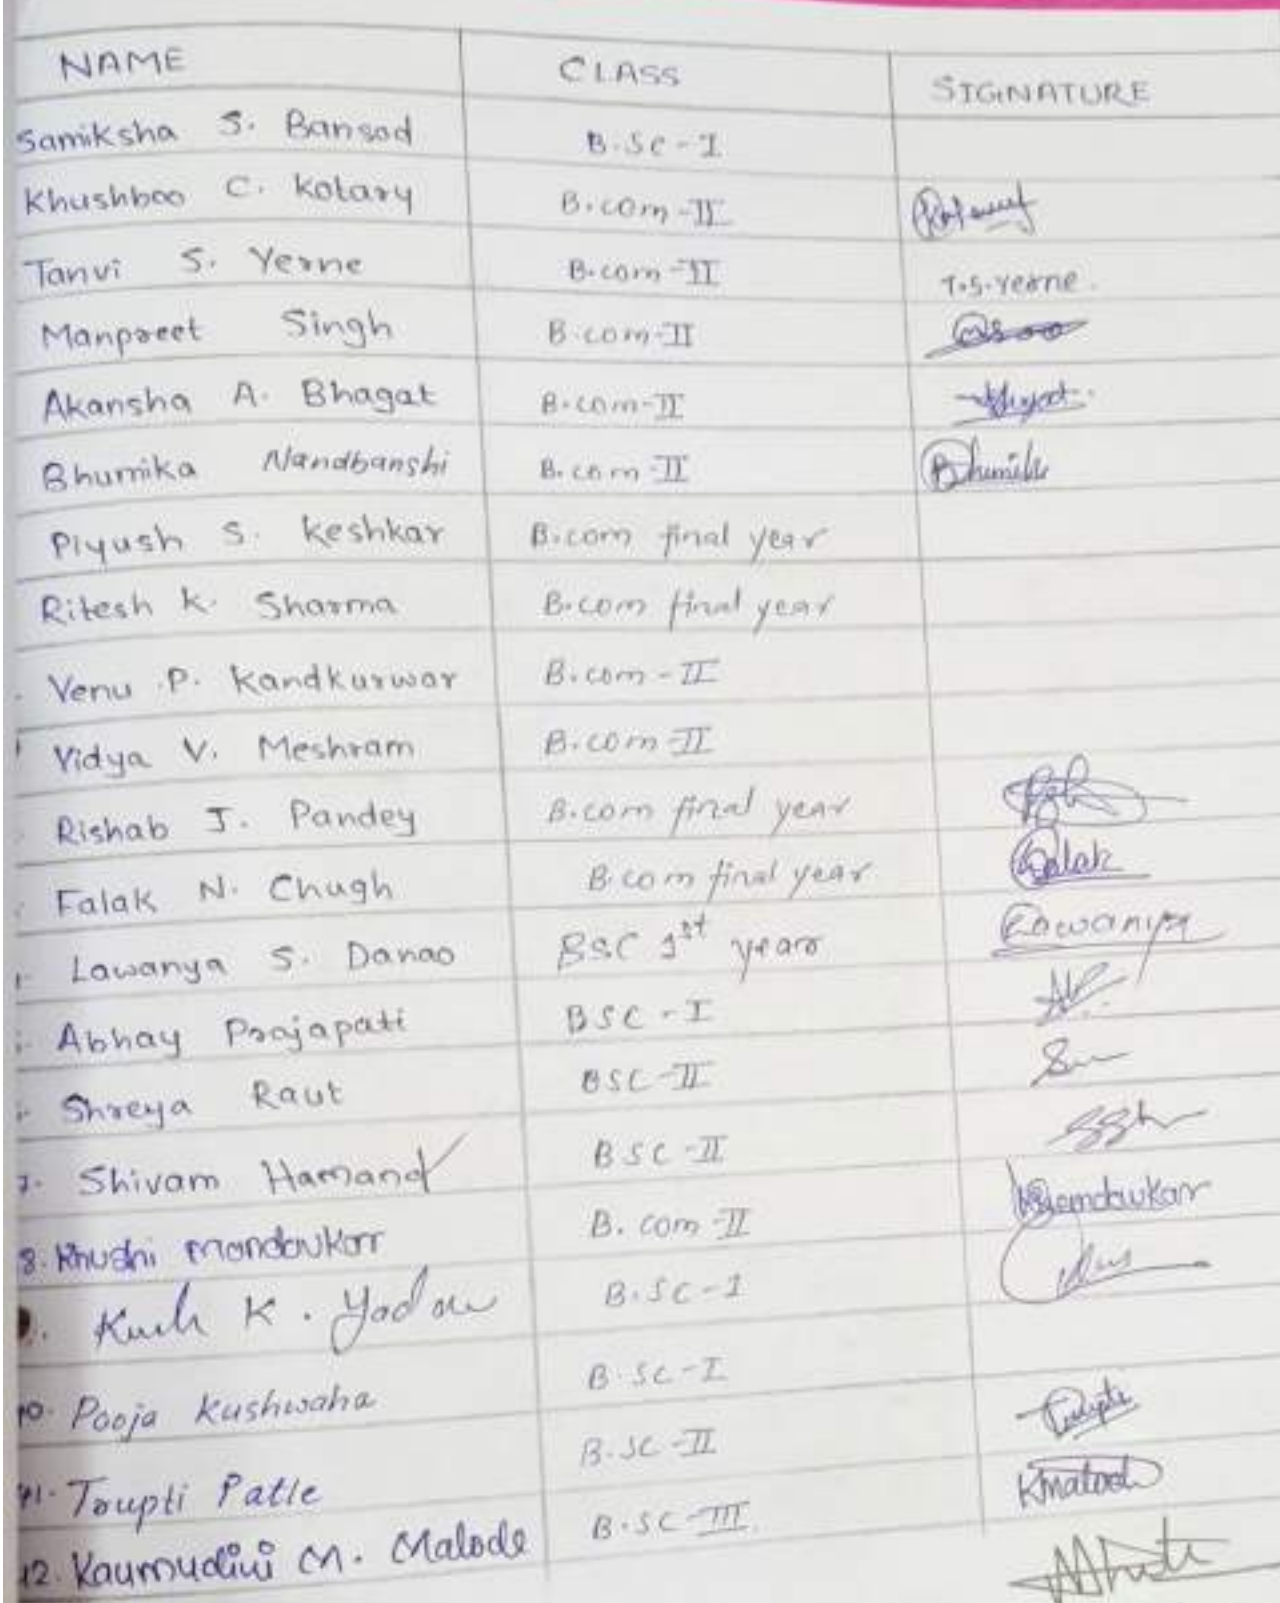 NAME CLASS SIGNATURE
Samiksha S. Bansod B.Sc-I
Khushboo C. Kotary B.com-II
Tanvi S. Yerne B.com-II T.S.Yerne.
Manpreet Singh B.com-II
Akansha A. Bhagat B.com-II
Bhumika Nandbanshi B.com-II Bhumika
Piyush S. Keshkar B.com final year
Ritesh K. Sharma B.com final year
Venu P. Kandkurwar B.com-II
Vidya V. Meshram B.com-II
Rishab J. Pandey B.com final year
Falak N. Chugh B.com final year Falak
Lawanya S. Danao BSC 1st year Lawanya
Abhay Prajapati BSC-I
Shreya Raut BSC-II
7. Shivam Hamand BSC-II
8. Khushi Mandavkar B.com-II Mandavkar
Kush K. Yadav B.SC-I
10. Pooja Kushwaha B.SC-I
11. Trupti Patle B.SC-II Trupti
12. Kaumudini M. Malode B.SC-III KMalode